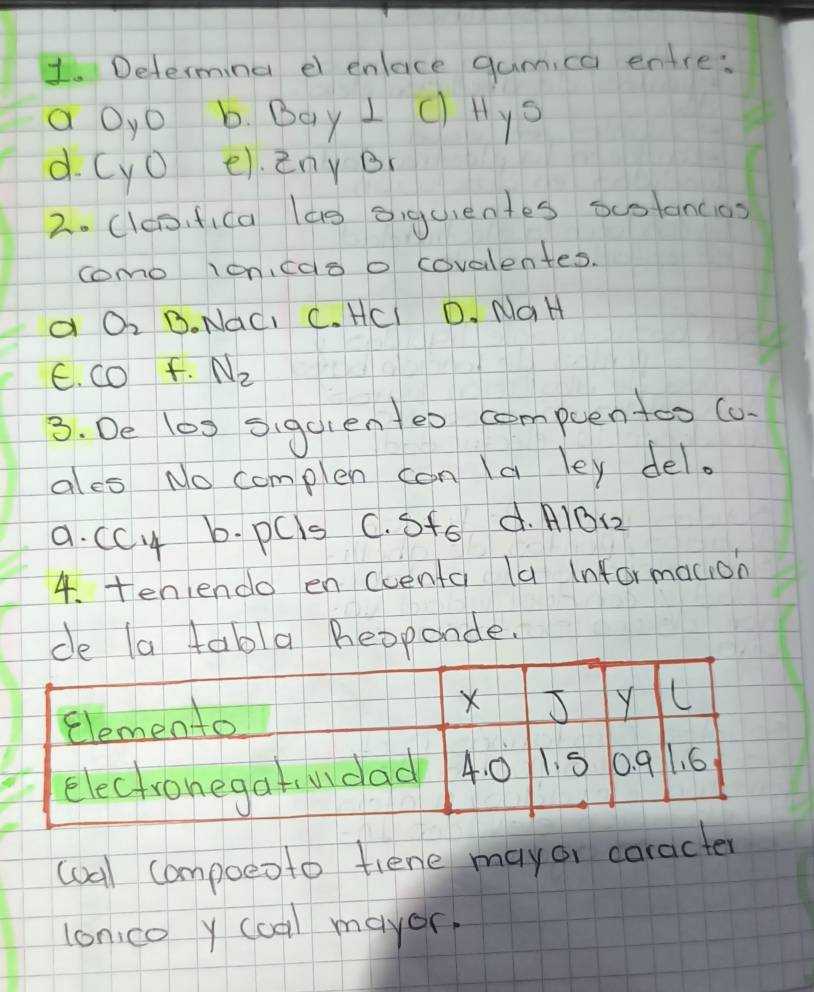 1. Determina el enlace qumica entre:
a O y O b. Ba y I C) H y S
d. C y O e). Zn y Br
2. Clasifica las siguientes sustancias
como ionicas o covalentes.
a O₂ B. NaCl C. HCl D. NaH
E. CO F. N₂
3. De los siguientes compuentos Cu-
ales No complen con la ley del.
a. CCl4 b. pCl5 C. Sf6 d. AlBr2
4. teniendo en cuenta la informacion
de la tabla Responde.
Elemento X J Y L
Electronegatividad 4.0 1.5 0.9 1.6
Cual compoesto tiene mayor caracter
ionico y cual mayor.